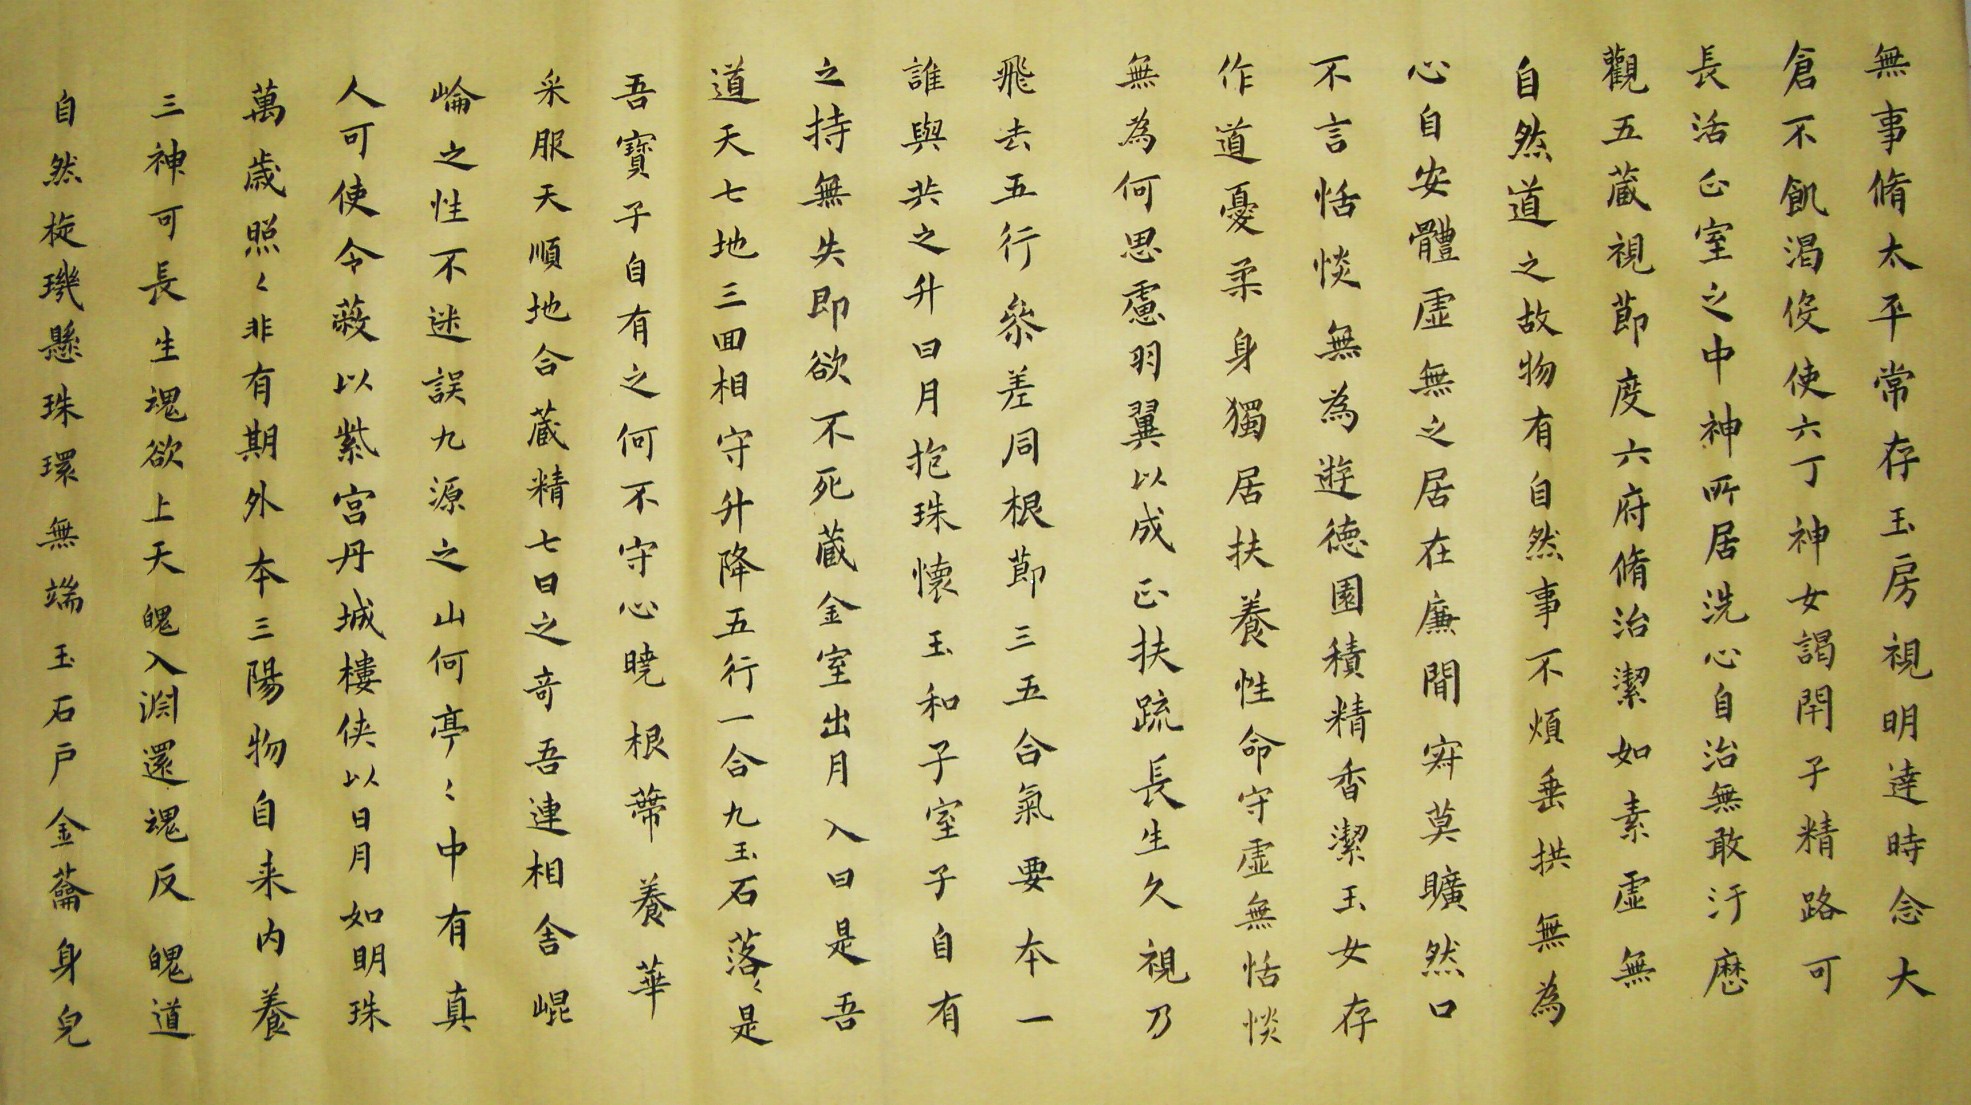 無事脩太平常存玉房視明達時念大
倉不飢渴伇使六丁神女謁閇子精路可
長活正室之中神所居洗心自治無敢汙歷
觀五藏視節度六府脩治潔如素虛無
自然道之故物有自然事不煩垂拱無為
心自安體虛無之居在廉間寂莫曠然口
不言恬惔無為遊德園積精香潔玉女存
作道憂柔身獨居扶養性命守虛無恬惔
無為何思慮羽翼以成正扶疏長生久視乃
飛去五行參差同根節三五合氣要本一
誰與共之升日月抱珠懷玉和子室子自有
之持無失即欲不死藏金室出月入日是吾
道天七地三回相守升降五行一合九玉石落〻是
吾寶子自有之何不守心曉根蔕養華
采服天順地合藏精七日之奇吾連相舍崐
崘之性不迷誤九源之山何亭〻中有真
人可使令蔽以紫宮丹城樓俠以日月如明珠
萬歲照〻非有期外本三陽物自来内養
三神可長生魂欲上天魄入淵還魂反魄道
自然旋璣懸珠環無端玉石戶金籥身皃